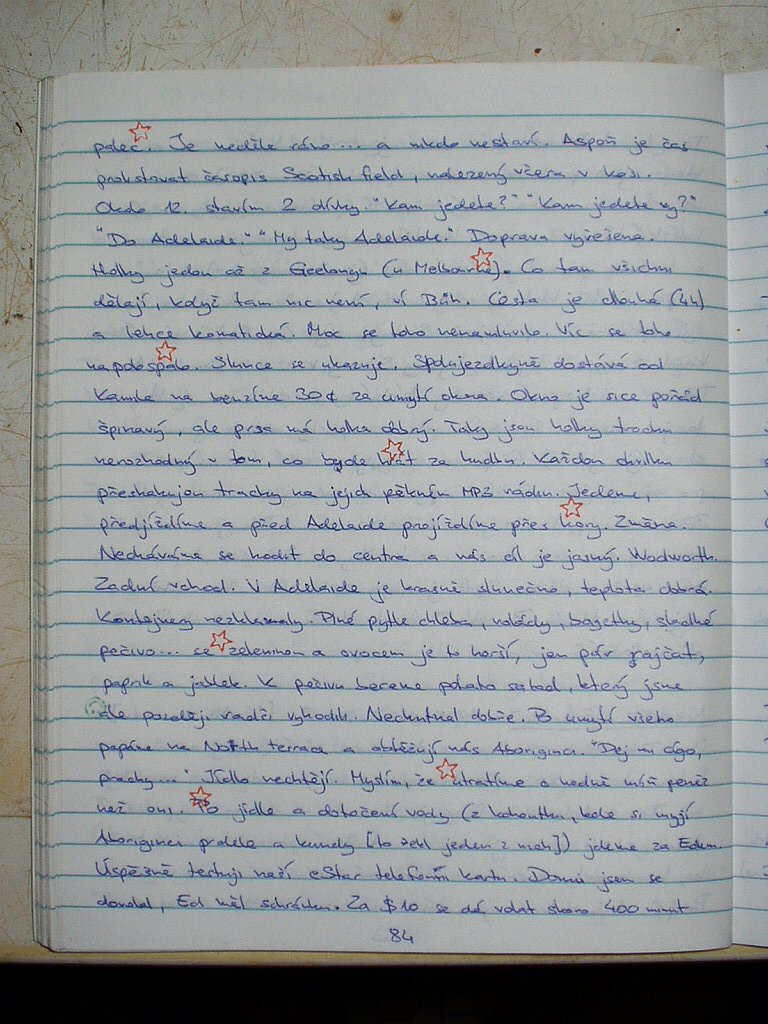 palec. Je neděle ráno... a nikdo nestaví. Aspoň je čas
prolistovat časopis Scotish field, nalezený včera v koši.
Okolo 12. stavím 2 dívky. "Kam jedete?" "Kam jedete vy?"
"Do Adelaide." "My taky Adelaide." Doprava vyřešena.
Holky jedou až z Geelongu (u Melbourne). Co tam všichni
dělají, když tam nic není, ví Bůh. Cesta je dlouhá (4h)
a lehce komatická. Moc se toho nenamluvilo. Víc se toho
napolospalo. Slunce se ukazuje. Spolujezdkyně dostává od
Kamila na benzíne 30¢ za umytí okna. Okno je sice pořád
špinavý, ale prsa má holka dobrý. Taky jsou holky trochu
nerozhodný v tom, co bude hrát za hudbu. Každou chvilku
přeskakujou tracky na jejich pěkným MP3 rádiu. Jedeme,
předjíždíme a před Adelaide projíždíme přes hory. Změna.
Necháváme se hodit do centra a náš cíl je jasný. Wodworth.
Zadní vchod. V Adelaide je krásně slunečno, teplota dobrá.
Kontejnery nezklamaly. Plné pytle chleba, rolády, bagetky, sladké
pečivo... se zeleninou a ovocem je to horší, jen pár rajčat,
paprik a jablek. K pečivu bereme potato salad, který jsme
ale později radši vyhodili. Nechutnal dobře. Po umytí všeho
papáme na North terrace a obtěžují nás Aboriginci. "Dej mi cígo,
prachy..." Jídlo nechtějí. Myslím, že utratíme o hodně míň peněz
než oni. Po jídle a dotočení vody (z kohoutku, kde si myjí
Aboriginci prdele a kundy [to řekl jeden z nich]) jdeme za Edem.
Úspěšně testuji naší eStar telefonní kartu. Domů jsem se
dovolal, Ed měl schránku. Za $10 se dá volat skoro 400 minut
84